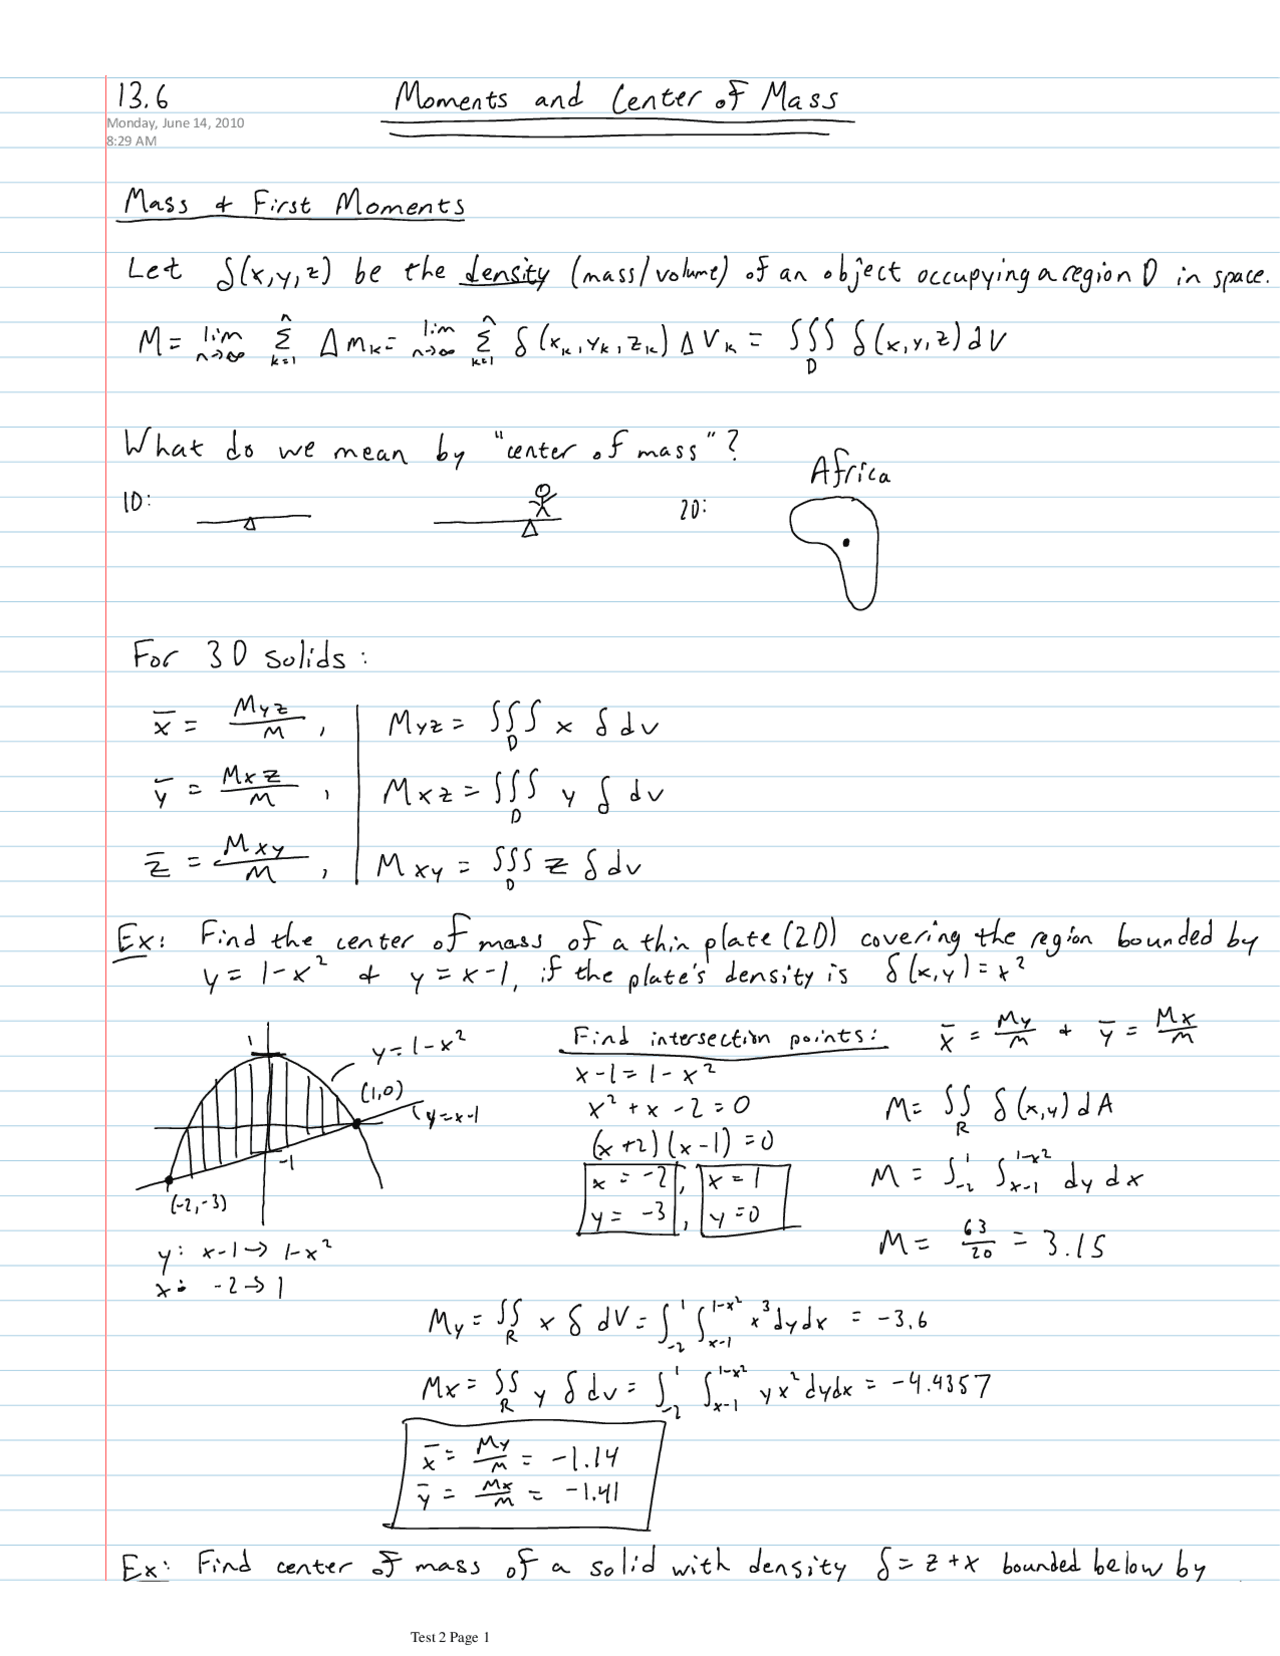 13.6 Moments and Center of Mass
Monday, June 14, 2010
8:29 AM
Mass & First Moments
Let δ(x,y,z) be the density (mass/volume) of an object occupying a region D in space.
M = lim n→∞ Σ k=1 n Δm_k = lim n→∞ Σ k=1 n δ(x_k, y_k, z_k) ΔV_k = ∫∫∫_D δ(x,y,z) dV
What do we mean by "center of mass"?
Africa
1D: 2D:
For 3D solids:
x̄ = Myz/M , Myz = ∫∫∫_D x δ dv
ȳ = Mxz/M , Mxz = ∫∫∫_D y δ dv
z̄ = Mxy/M , Mxy = ∫∫∫_D z δ dv
Ex: Find the center of mass of a thin plate (2D) covering the region bounded by
y = 1-x² & y = x-1, if the plate's density is δ(x,y) = x²
1
y = 1-x²
(1,0)
y=x-1
-1
(-2,-3)
y: x-1 → 1-x²
x: -2 → 1
Find intersection points:
x-1 = 1-x²
x² + x - 2 = 0
(x+2)(x-1) = 0
x = -2, x = 1
y = -3, y = 0
x̄ = My/M & ȳ = Mx/M
M = ∫∫_R δ(x,y) dA
M = ∫_-2^1 ∫_x-1^1-x² dy dx
M = 63/20 = 3.15
My = ∫∫_R x δ dV = ∫_-2^1 ∫_x-1^1-x² x³ dy dx = -3.6
Mx = ∫∫_R y δ dv = ∫_-2^1 ∫_x-1^1-x² yx² dy dx = -4.4357
x̄ = My/M = -1.14
ȳ = Mx/M = -1.41
Ex: Find center of mass of a solid with density δ = z + x bounded below by
Test 2 Page 1